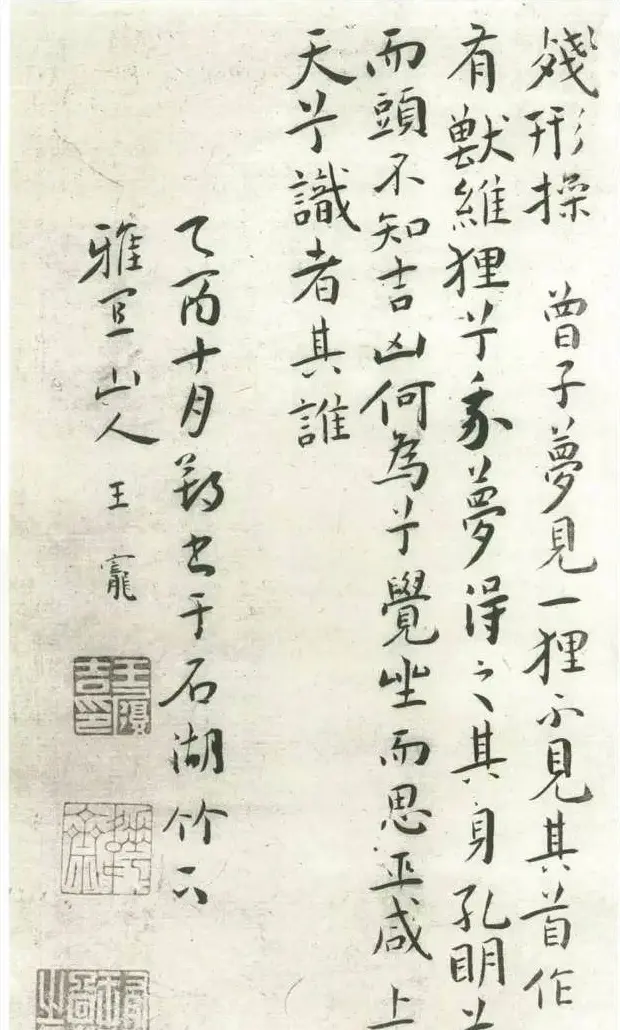 殘形操 曾子夢見一狸不見其首作
有獸維狸兮我夢得之其身孔明兮
而頭不知吉凶何為兮覺坐而思巫咸上
天兮識者其誰
乙酉十月望書于石湖竹下
雅宜山人 王寵